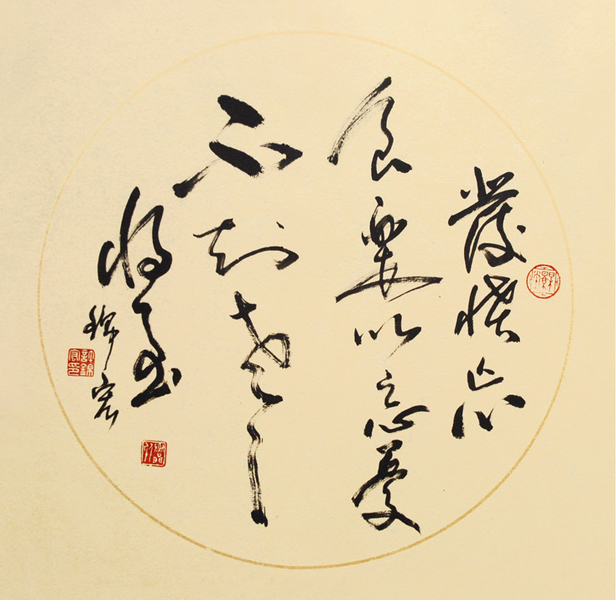 發憤忘
食樂以忘憂
不知老之
將至